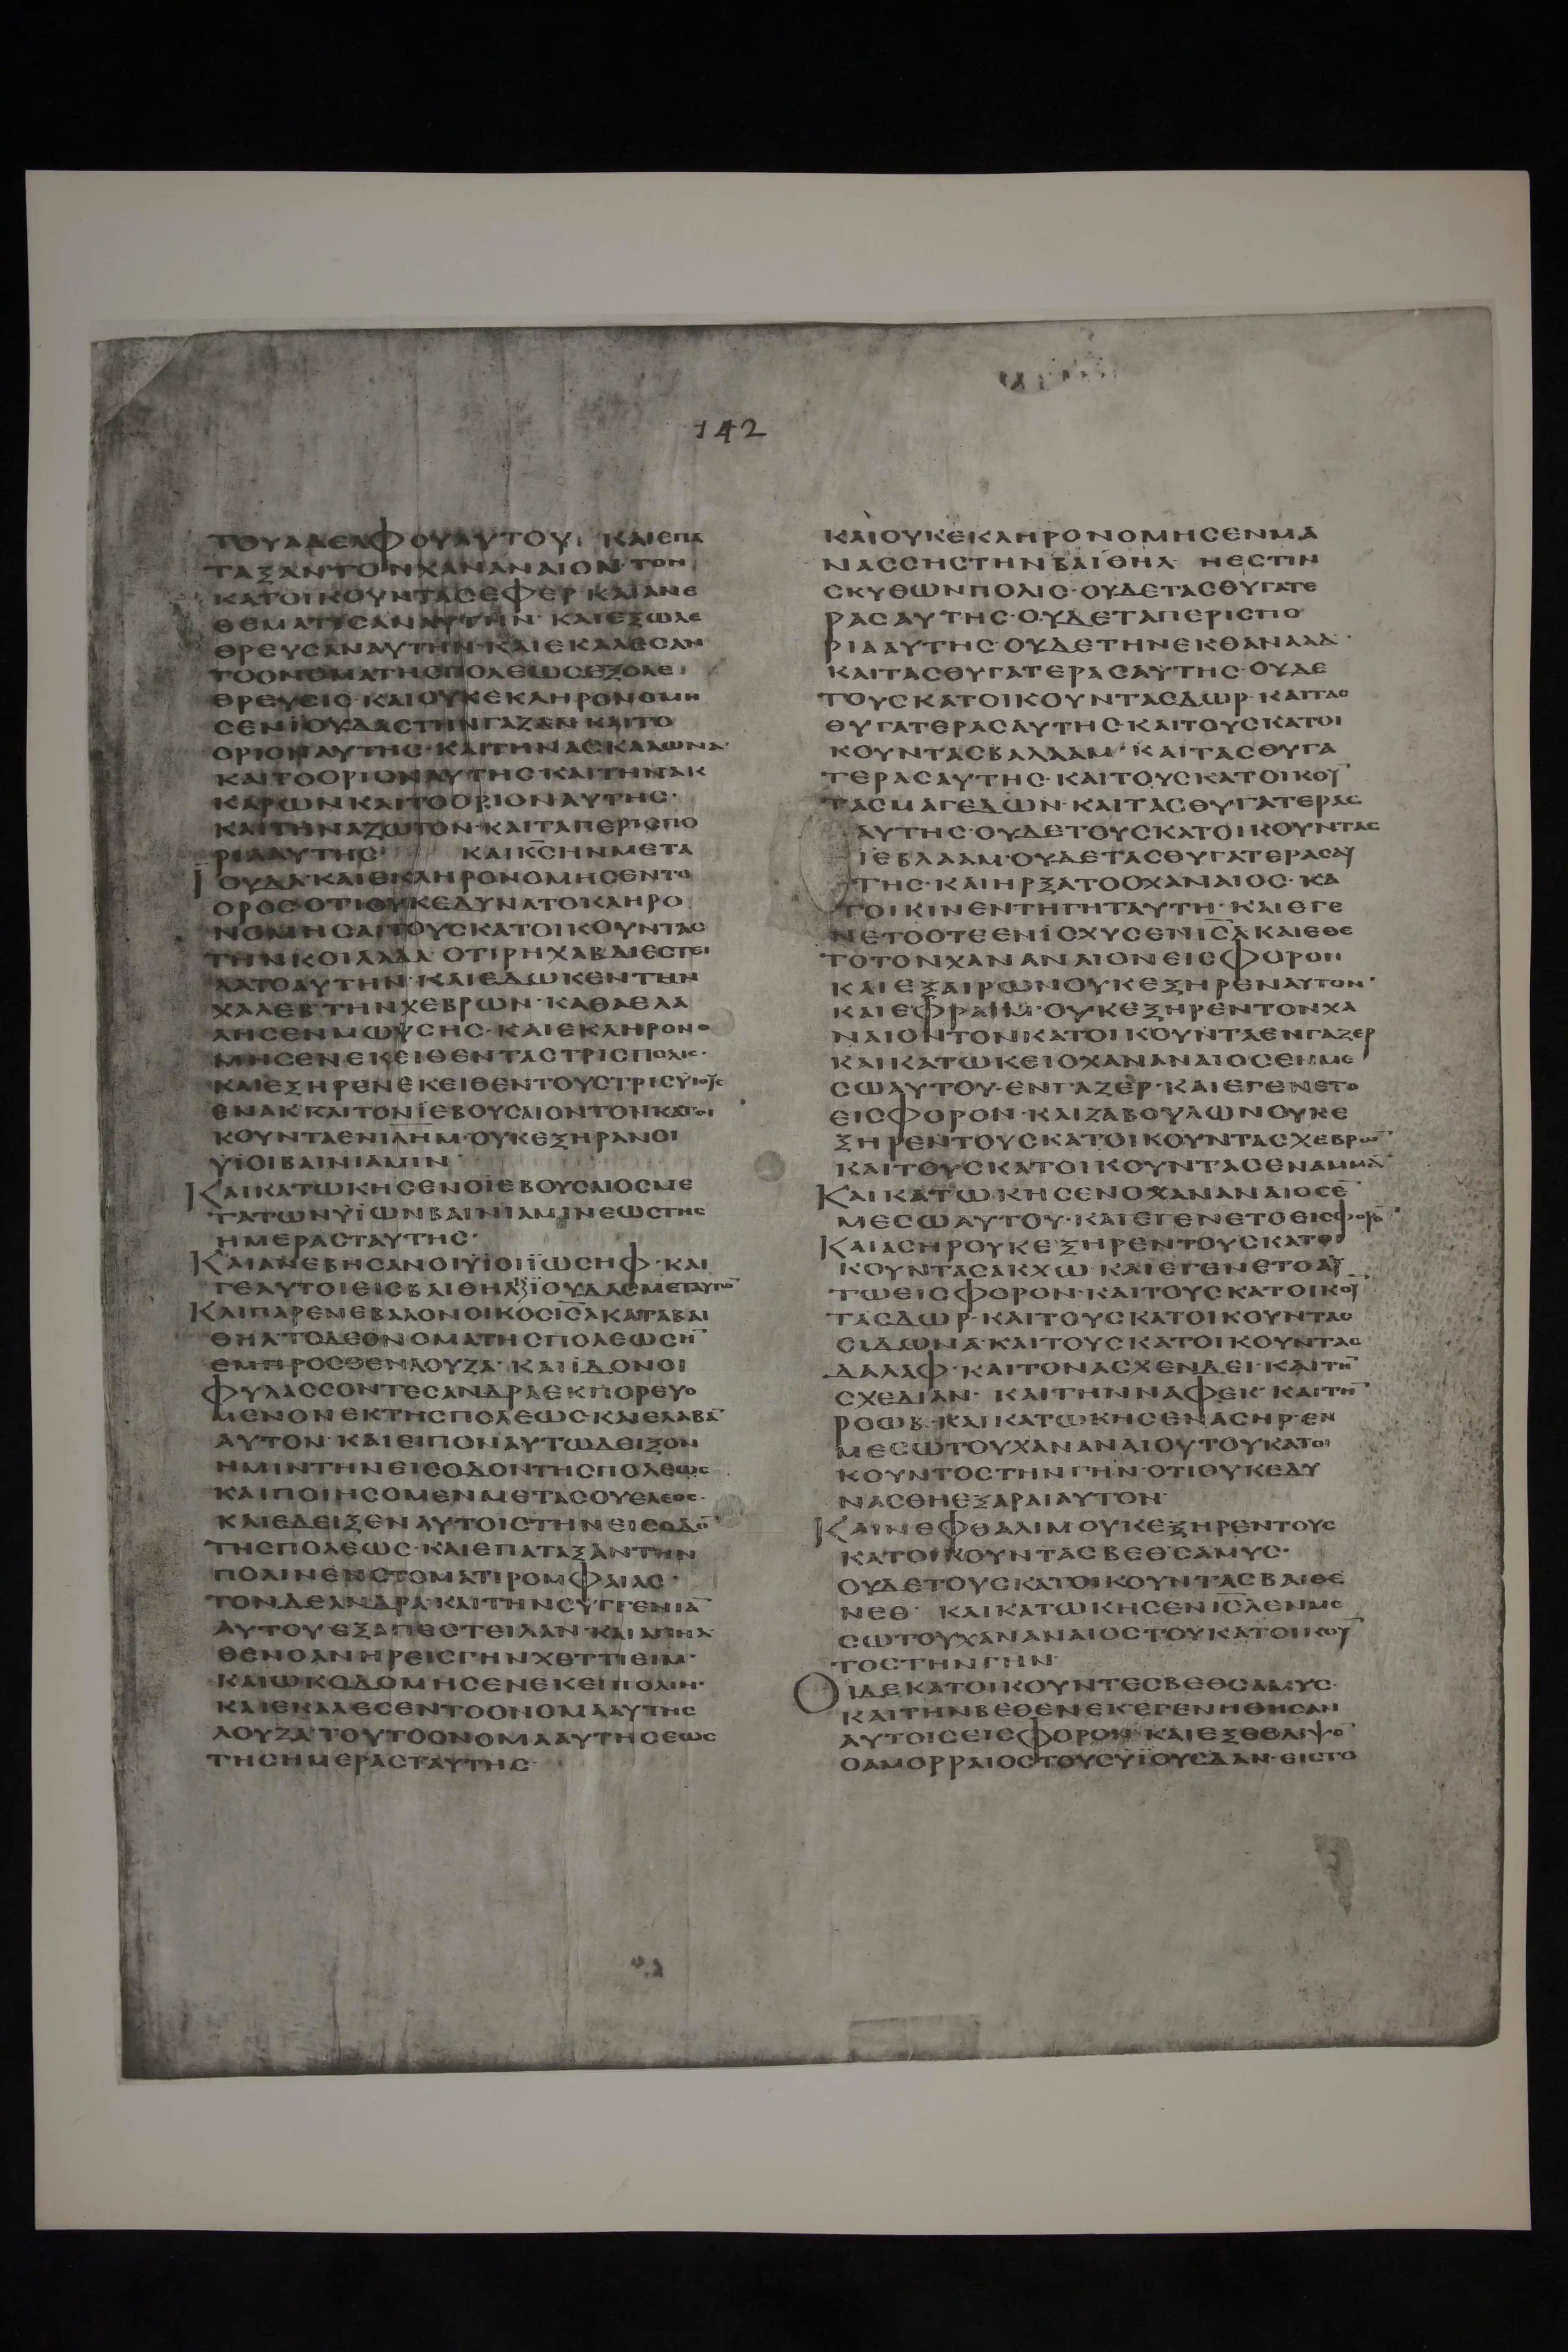 142
ΤΟΥΑΔΕΛΦΟΥΑΥΤΟΥ· ΚΑΙΕΠΑ
ΤΑΞΑΝΤΟΝΧΑΝΑΝΑΙΟΝ·ΤΟΝ
ΚΑΤΟΙΚΟΥΝΤΑΣΕΦΕΡ·ΚΑΙΑΝΕ
ΘΕΜΑΤΙΣΑΝΑΥΤΗΝ·ΚΑΙΕΞΩΛΕ
ΘΡΕΥΣΑΝΑΥΤΗΝ·ΚΑΙΕΚΑΛΕΣΑΝ
ΤΟΟΝΟΜΑΤΗΣΠΟΛΕΩΣΕΞΟΛΕ
ΘΡΕΥΣΙΣ·ΚΑΙΟΥΚΕΚΛΗΡΟΝΟΜΗ
ΣΕΝΪΟΥΔΑΣΤΗΝΓΑΖΑΝΚΑΙΤΟ
ΟΡΙΟΝΑΥΤΗΣ·ΚΑΙΤΗΝΑΣΚΑΛΩΝΑ·
ΚΑΙΤΟΟΡΙΟΝΑΥΤΗΣ·ΚΑΙΤΗΝΑΚ
ΚΑΡΩΝΚΑΙΤΟΟΡΙΟΝΑΥΤΗΣ·
ΚΑΙΤΗΝΑΖΩΤΟΝ·ΚΑΙΤΑΠΕΡΙΣΠΟ
ΡΙΑΑΥΤΗΣ· ΚΑΙΚ̅Σ̅ΗΝΜΕΤΑ
ΙΟΥΔΑ·ΚΑΙΕΚΛΗΡΟΝΟΜΗΣΕΝΤΟ
ΟΡΟΣΟΤΙΟΥΚΕΔΥΝΑΤΟΚΛΗΡΟ
ΝΟΜΗΣΑΙΤΟΥΣΚΑΤΟΙΚΟΥΝΤΑΣ
ΤΗΝΚΟΙΛΑΔΑ·ΟΤΙΡΗΧΑΒΔΙΕΣΤΕΙ
ΛΑΤΟΑΥΤΗΝ·ΚΑΙΕΔΩΚΕΝΤΗΝ
ΧΑΛΕΒΤΗΝΧΕΒΡΩΝ·ΚΑΘΑΕΛΑ
ΛΗΣΕΝΜΩΥΣΗΣ·ΚΑΙΕΚΛΗΡΟΝΟ
ΜΗΣΕΝΕΚΕΙΘΕΝΤΑΣΤΡΙΣΠΟΛΙΣ·
ΚΑΙΕΞΗΡΕΝΕΚΕΙΘΕΝΤΟΥΣΤΡΙΣΥΙΟΥΣ
ΕΝΑΚ·ΚΑΙΤΟΝΪΕΒΟΥΣΑΙΟΝΤΟΝΚΑΤΟΙ
ΚΟΥΝΤΑΕΝΙ̅Λ̅Η̅Μ̅·ΟΥΚΕΞΗΡΑΝΟΙ
ΫΙΟΙΒΑΙΝΙΑΜΙΝ·
ΚΑΙΚΑΤΩΚΗΣΕΝΟΪΕΒΟΥΣΑΙΟΣΜΕ
ΤΑΤΩΝΥΪΩΝΒΑΙΝΙΑΜΙΝΕΩΣΤΗΣ
ΗΜΕΡΑΣΤΑΥΤΗΣ·
ΚΑΙΑΝΕΒΗΣΑΝΟΙΥΪΟΙΪΩΣΗΦ·ΚΑΙ
ΓΕΑΥΤΟΙΕΙΣΒΑΙΘΗΛ·ΪΟΥΔΑΣΜΕΤΑΥΤΩ̅
ΚΑΙΠΑΡΕΝΕΒΑΛΟΝΟΙΚΟΣΙ̅Σ̅Λ̅ΚΑΤΑΒΑΙ
ΘΗΛ·ΤΟΔΕΟΝΟΜΑΤΗΣΠΟΛΕΩΣΗ̅
ΕΜΠΡΟΣΘΕΝΛΟΥΖΑ·ΚΑΙΪΔΟΝΟΙ
ΦΥΛΑΣΣΟΝΤΕΣΑΝΔΡΑΕΚΠΟΡΕΥΟ
ΜΕΝΟΝΕΚΤΗΣΠΟΛΕΩΣ·ΚΑΙΕΛΑΒΑ̅
ΑΥΤΟΝ·ΚΑΙΕΙΠΟΝΑΥΤΩΔΕΙΞΟΝ
ΗΜΙΝΤΗΝΕΙΣΟΔΟΝΤΗΣΠΟΛΕΩΣ
ΚΑΙΠΟΙΗΣΟΜΕΝΜΕΤΑΣΟΥΕΛΕΟΣ·
ΚΑΙΕΔΕΙΞΕΝΑΥΤΟΙΣΤΗΝΕΙΣΟΔΟ̅
ΤΗΣΠΟΛΕΩΣ·ΚΑΙΕΠΑΤΑΞΑΝΤΗΝ
ΠΟΛΙΝΕΝΣΤΟΜΑΤΙΡΟΜΦΑΙΑΣ·
ΤΟΝΔΕΑΝΔΡΑ·ΚΑΙΤΗΝΣΥΓΓΕΝΙΑ̅
ΑΥΤΟΥΕΞΑΠΕΣΤΕΙΛΑΝ·ΚΑΙΑΠΗΛ
ΘΕΝΟΑΝΗΡΕΙΣΓΗΝΧΕΤΤΙΕΙΜ·
ΚΑΙΩΚΟΔΟΜΗΣΕΝΕΚΕΙΠΟΛΙΝ·
ΚΑΙΕΚΑΛΕΣΕΝΤΟΟΝΟΜΑΑΥΤΗΣ
ΛΟΥΖΑ·ΤΟΥΤΟΟΝΟΜΑΑΥΤΗΣΕΩΣ
ΤΗΣΗΜΕΡΑΣΤΑΥΤΗΣ·
ΚΑΙΟΥΚΕΚΛΗΡΟΝΟΜΗΣΕΝΜΑ
ΝΑΣΣΗΣΤΗΝΒΑΙΘΗΛ ΗΕΣΤΙΝ
ΣΚΥΘΩΝΠΟΛΙΣ·ΟΥΔΕΤΑΣΘΥΓΑΤΕ
ΡΑΣΑΥΤΗΣ·ΟΥΔΕΤΑΠΕΡΙΣΠΟ
ΡΙΑΑΥΤΗΣ·ΟΥΔΕΤΗΝΕΚΘΑΝΑΑΔ·
ΚΑΙΤΑΣΘΥΓΑΤΕΡΑΣΑΥΤΗΣ·ΟΥΔΕ
ΤΟΥΣΚΑΤΟΙΚΟΥΝΤΑΣΔΩΡ·ΚΑΙΤΑΣ
ΘΥΓΑΤΕΡΑΣΑΥΤΗΣ·ΚΑΙΤΟΥΣΚΑΤΟΙ
ΚΟΥΝΤΑΣΒΑΛΑΑΜ·ΚΑΙΤΑΣΘΥΓΑ
ΤΕΡΑΣΑΥΤΗΣ·ΚΑΙΤΟΥΣΚΑΤΟΙΚΟΥ̅
ΤΑΣΜΑΓΕΔΩΝ·ΚΑΙΤΑΣΘΥΓΑΤΕΡΑΣ
ΑΥΤΗΣ·ΟΥΔΕΤΟΥΣΚΑΤΟΙΚΟΥΝΤΑΣ
ΪΕΒΛΑΑΜ·ΟΥΔΕΤΑΣΘΥΓΑΤΕΡΑΣΑΥ
ΤΗΣ·ΚΑΙΗΡΞΑΤΟΟΧΑΝΑΙΟΣ·ΚΑ
ΤΟΙΚΙΝΕΝΤΗΓΗΤΑΥΤΗ·ΚΑΙΕΓΕ
ΝΕΤΟΟΤΕΕΝΪΣΧΥΣΕΝΙ̅Σ̅Λ̅ΚΑΙΕΘΕ
ΤΟΤΟΝΧΑΝΑΝΑΙΟΝΕΙΣΦΟΡΟΝ
ΚΑΙΕΞΑΙΡΩΝΟΥΚΕΞΗΡΕΝΑΥΤΟΝ·
ΚΑΙΕΦΡΑΙΜ·ΟΥΚΕΞΗΡΕΝΤΟΝΧΑ
ΝΑΙΟΝΤΟΝΚΑΤΟΙΚΟΥΝΤΑΕΝΓΑΖΕΡ
ΚΑΙΚΑΤΩΚΕΙΟΧΑΝΑΝΑΙΟΣΕΝΜΕ
ΣΩΑΥΤΟΥ·ΕΝΓΑΖΕΡ·ΚΑΙΕΓΕΝΕΤΟ
ΕΙΣΦΟΡΟΝ·ΚΑΙΖΑΒΟΥΛΩΝΟΥΚΕ
ΞΗΡΕΝΤΟΥΣΚΑΤΟΙΚΟΥΝΤΑΣΧΕΒΡΩ̅·
ΚΑΙΤΟΥΣΚΑΤΟΙΚΟΥΝΤΑΣΕΝΑΜΜΑΝ·
ΚΑΙΚΑΤΩΚΗΣΕΝΟΧΑΝΑΝΑΙΟΣΕ̅
ΜΕΣΩΑΥΤΟΥ·ΚΑΙΕΓΕΝΕΤΟΕΙΣΦΟΡΟ̅·
ΚΑΙΑΣΗΡΟΥΚΕΞΗΡΕΝΤΟΥΣΚΑΤΟΙ
ΚΟΥΝΤΑΣΑΚΧΩ·ΚΑΙΕΓΕΝΕΤΟΑΥ
ΤΩΕΙΣΦΟΡΟΝ·ΚΑΙΤΟΥΣΚΑΤΟΙΚΟΥ̅
ΤΑΣΔΩΡ·ΚΑΙΤΟΥΣΚΑΤΟΙΚΟΥΝΤΑΣ
ΣΙΔΩΝΑ·ΚΑΙΤΟΥΣΚΑΤΟΙΚΟΥΝΤΑΣ
ΔΑΛΑΦ·ΚΑΙΤΟΝΑΣΧΕΝΔΕΙ·ΚΑΙΤΗ̅
ΣΧΕΔΙΑΝ·ΚΑΙΤΗΝΝΑΦΕΚ·ΚΑΙΤΗ̅
ΡΟΩΒ·ΚΑΙΚΑΤΩΚΗΣΕΝΑΣΗΡ·ΕΝ
ΜΕΣΩΤΟΥΧΑΝΑΝΑΙΟΥΤΟΥΚΑΤΟΙ
ΚΟΥΝΤΟΣΤΗΝΓΗΝ·ΟΤΙΟΥΚΕΔΥ
ΝΑΣΘΗΕΞΑΡΑΙΑΥΤΟΝ·
ΚΑΙΝΕΦΘΑΛΙΜΟΥΚΕΞΗΡΕΝΤΟΥΣ
ΚΑΤΟΙΚΟΥΝΤΑΣΒΕΘΣΑΜΥΣ·
ΟΥΔΕΤΟΥΣΚΑΤΟΙΚΟΥΝΤΑΣΒΑΙΘΕ
ΝΕΘ· ΚΑΙΚΑΤΩΚΗΣΕΝΙ̅Σ̅Λ̅ΕΝΜΕ
ΣΩΤΟΥΧΑΝΑΝΑΙΟΣΤΟΥΚΑΤΟΙΚΟΥ̅
ΤΟΣΤΗΝΓΗΝ·
ΟΙΔΕΚΑΤΟΙΚΟΥΝΤΕΣΒΕΘΣΑΜΥΣ·
ΚΑΙΤΗΝΒΕΘΕΝΕΚΕΓΕΝΗΘΗΣΑΝ
ΑΥΤΟΙΣΕΙΣΦΟΡΟΝ·ΚΑΙΕΞΕΘΛΙΨΕ̅
ΟΑΜΟΡΡΑΙΟΣΤΟΥΣΥΪΟΥΣΔΑΝ·ΕΙΣΤΟ